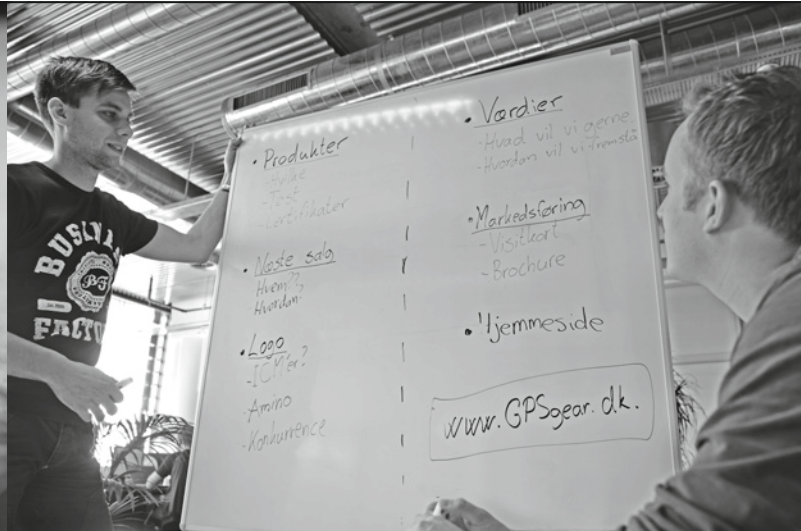 BUSINE
BF
FACTO
• Produkter
- Hvilke
- Test
- Certifikater
• Næste salg
Hvem??
Hvordan?
• Logo
- ICM'er?
- Amino
- Konkurrence
• Værdier
- Hvad vil vi gerne
- Hvordan vil vi fremstå
• Markedsføring
- Visitkort
- Brochure
• Hjemmeside
www.GPSgear.dk.